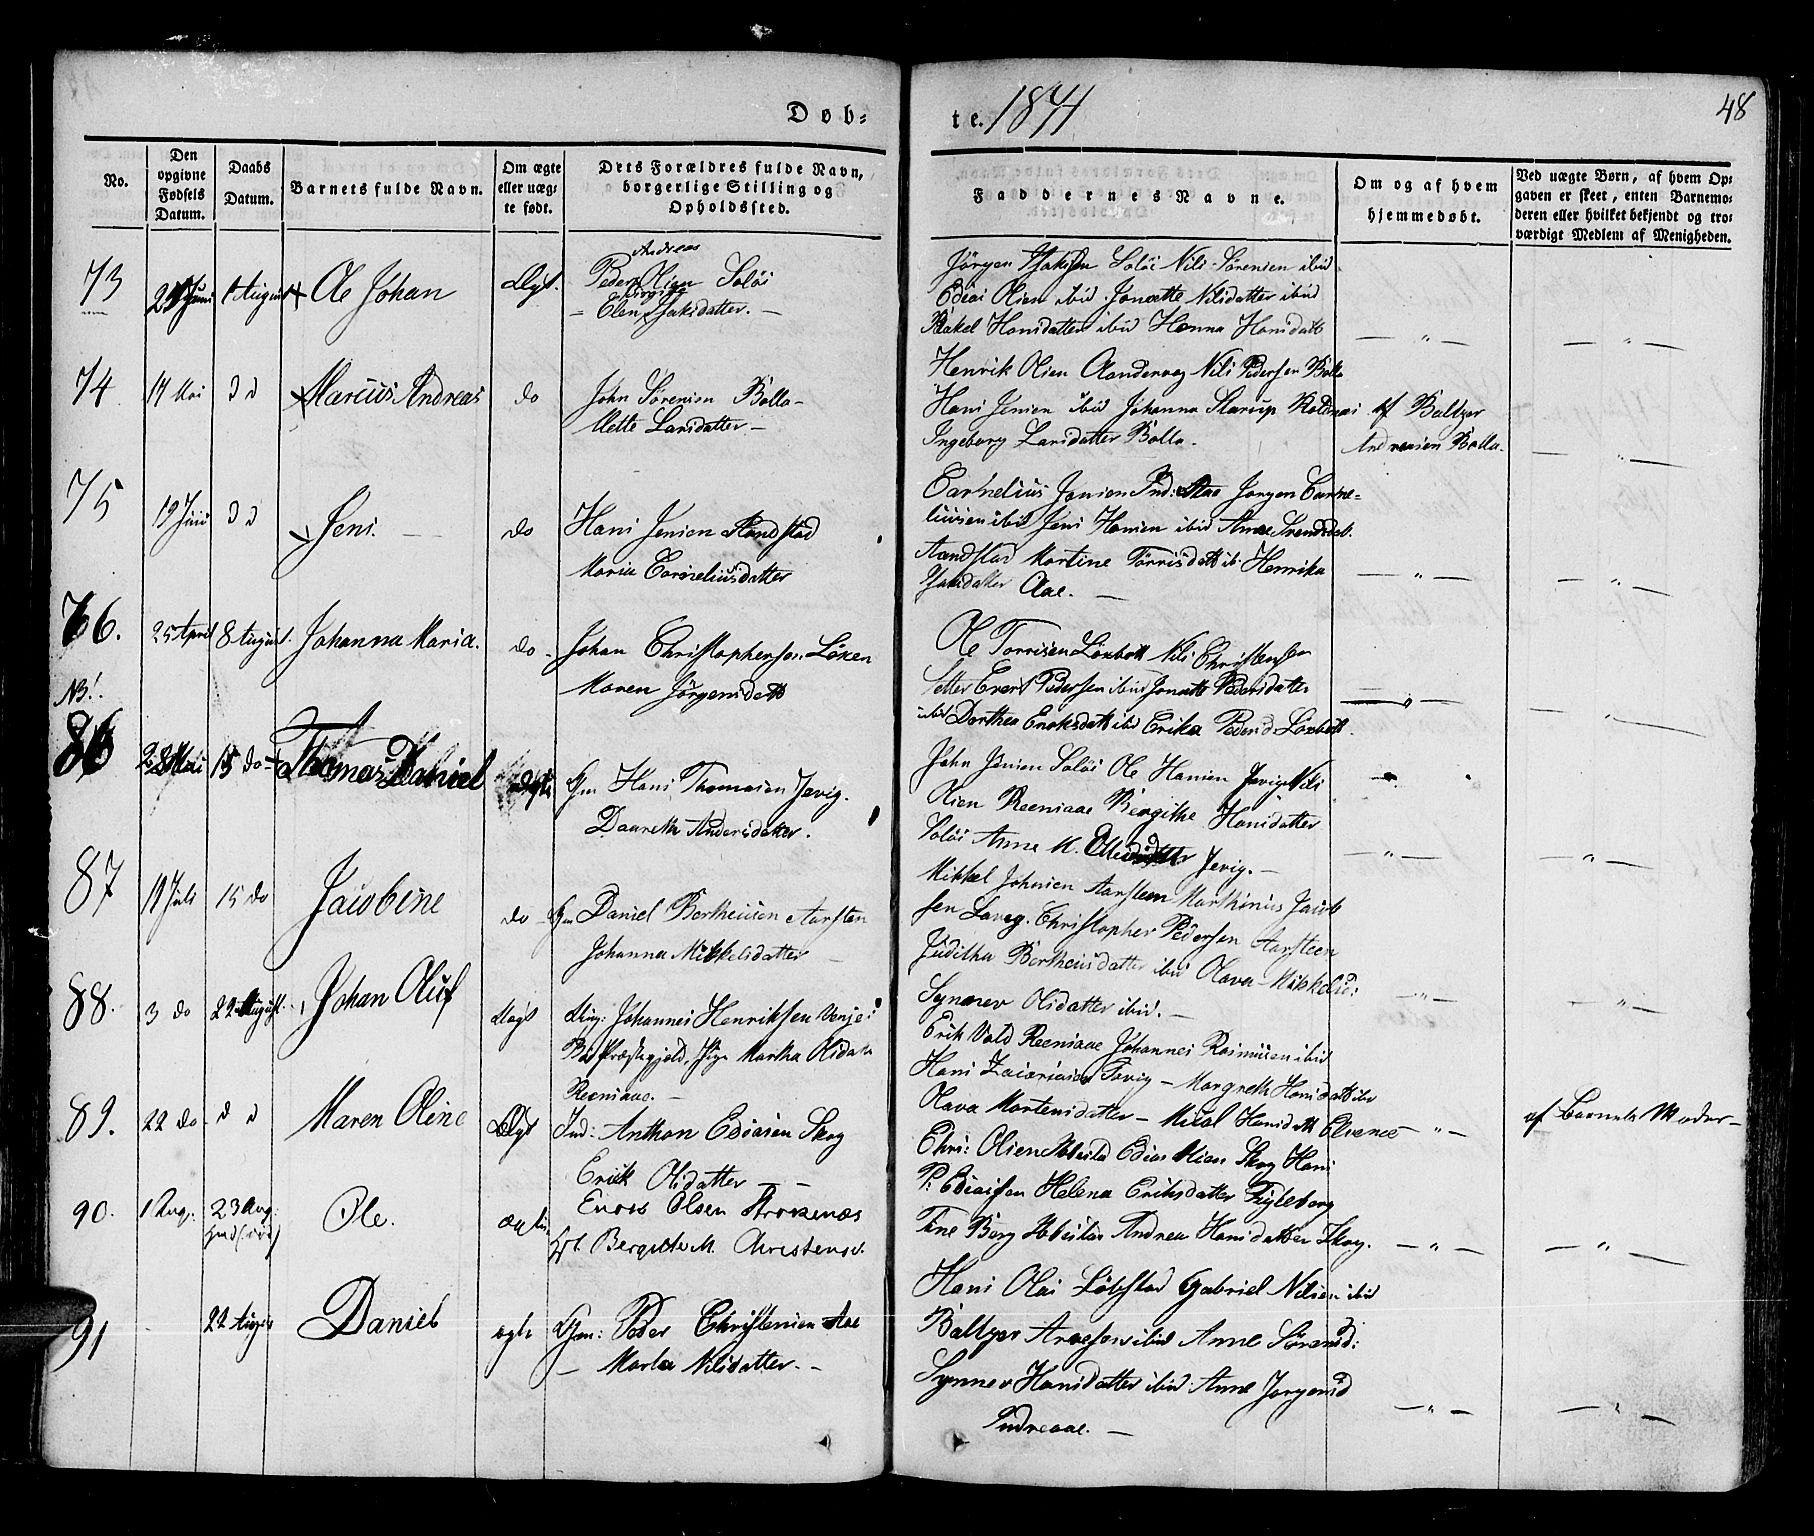 Døb-
te. 1841
48
No.
Den opgivne Fødsels Datum.
Daabs Datum.
Barnets fulde Navn.
Om ægte eller uægte født.
Dets Forældres fulde Navn, borgerlige Stilling og Opholdssted.
Faddernes Navne.
Om og af hvem hjemmedøbt.
Ved uægte Børn, af hvem Opgaven er skeet, enten Barnemoderen eller hvilket bekjendt og troværdigt Medlem af Menigheden.
73
Juni
1 August
Ole Johan
Ægt.
Andreas
Peder Olsen Soløi
Birgitte
Elen Isaksdatter. —
Jørgen Isaksen Soløi Nils Sørensen ibid
Edias Olsen ibid. Jonette Nilsdatter ibid
Rakel Hansdatter ibid Hanna Hansdatt
— " —
— " —
74
17 Mai
d d
Marcus Andreas
do
John Sørensen Bolla —
Mette Larsdatter —
Henrik Olsen Aandervag Nils Pedersen Bolla
Hans Jensen ibid Johanna Starup Roldnæs
Ingeborg Larsdatter Bolla. —
af Baltzer
Andreasen Bolla.
— " —
75
19 Juni
d d
Jens. —
do
Hans Jensen Aandstad
Maria Corneliusdatter
Cornelius Jensen Ind: Aae Jørgen Corne-
liusen ibid Jens Hansen ibid Anne Svendsdat.
Aandstad Martine Torrisdatt ib. Henrika
Isaksdatter Aae. —
— " —
— " —
76.
25 April
8 August.
Johanna Maria.
do.
Johan Christophersen Löxen
Maren Jörgensdatt
Ole Torrisen Löxbott Nils Christensen
Sætter Evert Pedersen ibid Jonette Pedersdatter
ibid Dorthea Enoksdatt ibid Erika Pedersd Löxbott.
NB!.
86
28 Mai
15 do
Thomas Daniel
Ægte
Gm Hans Thomasen Jevig.
Daareth Andersdatter.
John Jensen Soløi Ole Hansen Jevig Nils
Olsen Reensaae Bergithe Hansdatter
Soløi Anne M. Jevig. —
— " —
— " —
87
19 Juli
15 do
Jacobine
do
Gm Daniel Bertheusen Aarsten
Johanna Mikkelsdatter —
Mikkel Johnsen Aarsteen Marthinus Jacob
sen Laveg. Christopher Pedersen Aarsteen
Juditha Bertheusdatter ibid Olava Mikkelsd:
Synnev Olsdatter ibid. —
— " —
— " —
88.
3 do
22 August.
Johan Oluf
Uægt
Ung: Johannes Henriksen
Præstegjeld, Pige Martha Olsdatt
Reensaae. —
Erik Vold Reensaae Johannes Rasmusen ibid
Hans Zacariasen — Margreth Hansdatt ibid
Olava Mortensdatter — Hansdatt Elvenes
— " —
af Barnets Moder —
89.
22 do.
d d
Maren Oline
Ægt
Ind: Anthon Ediasen Skog
Erik Olsdatter — —
Chri: Olsen Edias Olsen Skog Hans
P: Ediassen Helena Eriksdatter
Tine Borg Andrea Hansdatter Skog.
— " —
— " —
90.
1 Aug.
23 Aug.
Ole.
ægte
Enoks Olsen Strokenæs
Bergitte M. Christensd.
91
22 August
Daniel
ægte
Gm: Peder Christensen Aae
— Marta Nilsdatter. —
Hans Olai Löbstad Gabriel Nilsen ibid
Baltzer Arnesen ibid Anne Sörensd:
Synnev Hansdatter ibid: Anne Jorgensd
Indreaae. —
— " —
— " —